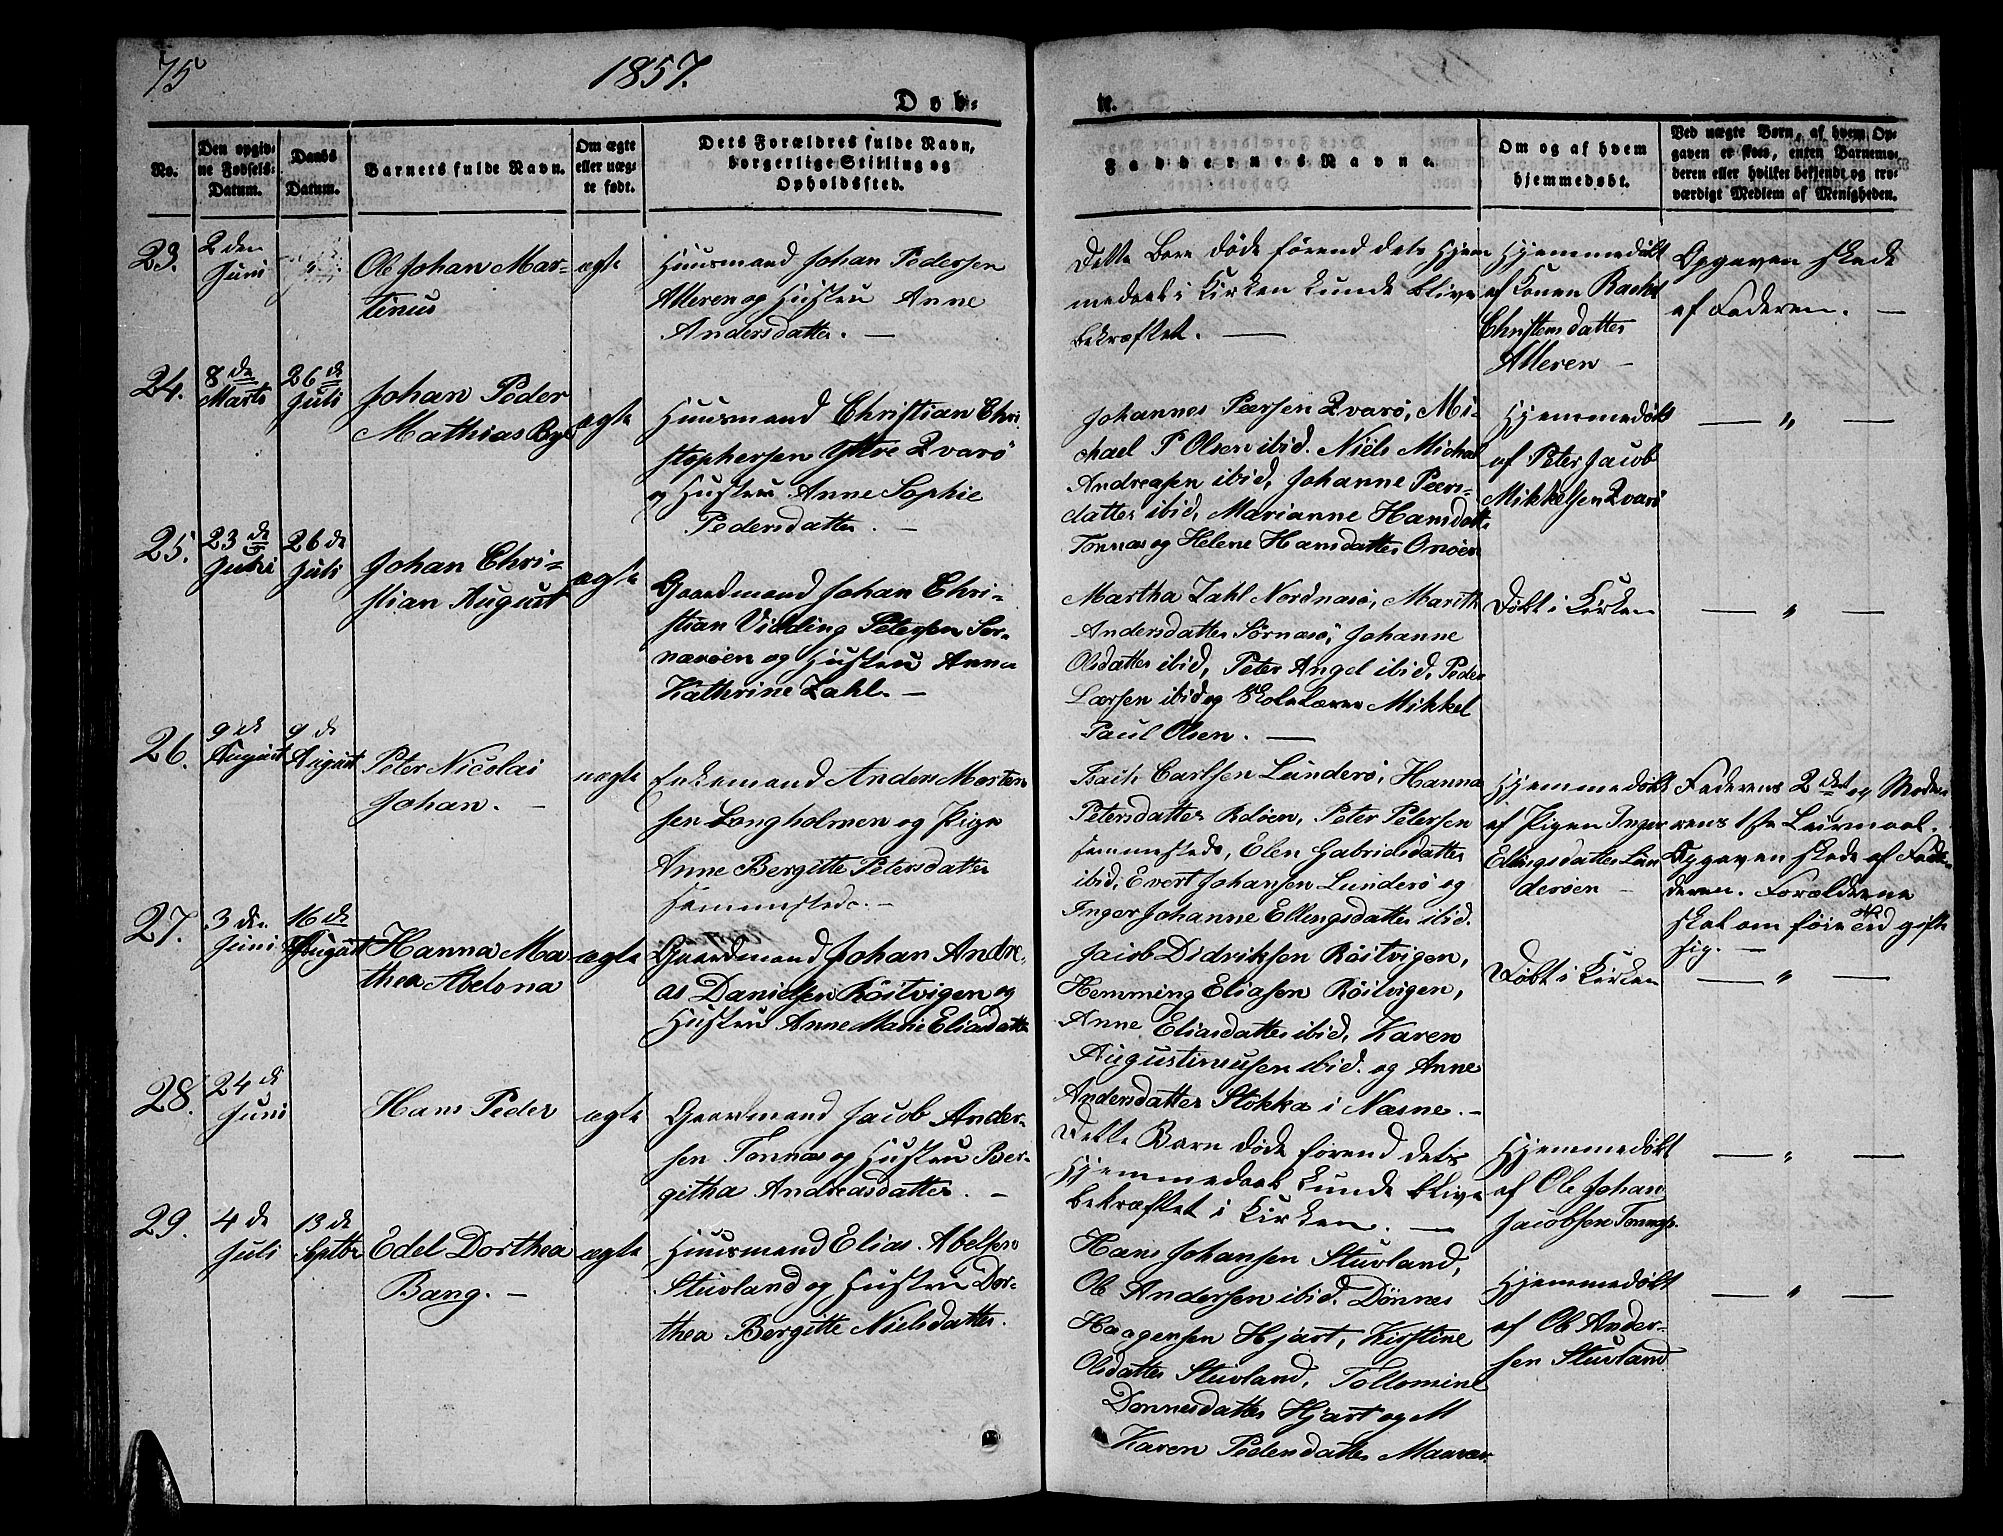 75
1857.
Døb-
te.
No.
Den opgiv-
ne Fødsels-
Datum.
Daabs
Datum.
Barnets fulde Navn.
Om ægte
eller uæg-
te født.
Dets Forældres fulde Navn,
borgerlige Stilling og
Opholdssted.
Faddernes Navne.
Om og af hvem
hjemmedøbt.
Ved uægte Børn, af hvem Op-
gaven er skeet, enten Barnemo-
deren eller hvilket bekjendt og tro-
værdigt Medlem af Menigheden.
23.
2 den
Juni
Ole Johan Mar-
tinus
ægte
Huusmand Johan Pedersen
Alteren og Hustru Anne
Andersdatter. —
Dette Barn døde førend dets Hjem
medaab i Kirken kunde blive
bekræftet. —
Hjemmedøbt
af Konen Rachel
Christensdatter
Alteren —
Opgaven skede
af Faderen. —
24.
8 de
Marts
26 de
Juli
Johan Peder
Mathias
ægte
Huusmand Christian Chri
stophersen Yttre Qvarø
og Hustru Anne Sophie
Pedersdatter. —
Johannes Peersen Qvarø, Mi-
chael P Olsen ibid. Niels Michal
Andreasen ibid, Johanne Peers-
datter ibid, Marianne Hansdatt
Tonnæs og Helene Hansdatter Onøen
Hjemmedøbt
af Peter Jacob
Mikkelsen Qvarø
— " —
25.
23 de
Juni
26 de
Juli
Johan Chri-
stian August
ægte
Gaardmand Johan Chri-
stian Vidding Petersen Sør-
næsøen og Hustru Anna
Kathrine Zahl. —
Martha Zahl Nordnæsø, Marith
Andersdatter Sørnæsø, Johanne
Olsdatter ibid, Peter Angel ibid, Peder
Larsen ibid og Skolelærer Mikkel
Paul Olsen. —
Døbt i Kirken
— " —
26.
9 de
August
9 de
August
Peter Nicolai
Johan. —
uægte
Enkemand Anders Morten
sen Langholmen og Pige
Anne Bergitte Petersdatter
sammesteds. —
Isach Carlsen Lunderø, Hanna
Petersdatter Rdøen, Peter Petersen
sammesteds, Elen Gabrielsdatter
ibid, Evert Johansen Lunderø og
Inger Johanne Ellingsdatter ibid.
Hjemmedøbt
af Pigen Inger
Ellingsdatter Lun
derøen —
Faderens 2 det og Mode
rens 1ste Leiermaal.
Opgaven skede af Fa
deren. Forældrene
skal om føie Tid gifte
sig. —
27.
3 den
Juni
16 de
August
Hanna Ma
thea Abelona
ægte
Gaardmand Johan Andre-
as Danielsen Röitvigen og
Hustru Anne Marie Eliasdatter
Jacob Didriksen Röitvigen,
Hemming Eliasen Röitvigen,
Anne Eliasdatter ibid, Karen
Augustinusen ibid. og Anne
Andersdatter Stokka i Næsne. —
Døbt i Kirken
— " —
28.
24 de
Juni
Hans Peder
ægte
Gaardmand Jacob Ander-
sen Tonnæs og Hustru Ber-
githa Andreasdatter. —
Dette Barn døde førend dets
Hjemmedaab kunde blive
bekræftet i Kirken. —
Hjemmedøbt
af Ole Johan
Jacobsen Tonnæs.
— " —
29.
4 de
Juli
13 de
Septbr
Edel Dorthea
Bang. —
ægte
Huusmand Elias Abelsen
Stuvland og Hustru Dor-
thea Bergitte Nielsdatter.
Hans Johansen Stuvland,
Ole Andersen ibid. Dönnes
Haagensen Hjart, Kirstine
Olsdatter Stuvland, Tollomine
Dönnesdatter Hjart og M
Karen Pedersdatter Maavær
Hjemmedøbt
af Ole Ander-
sen Stuvland
— " —